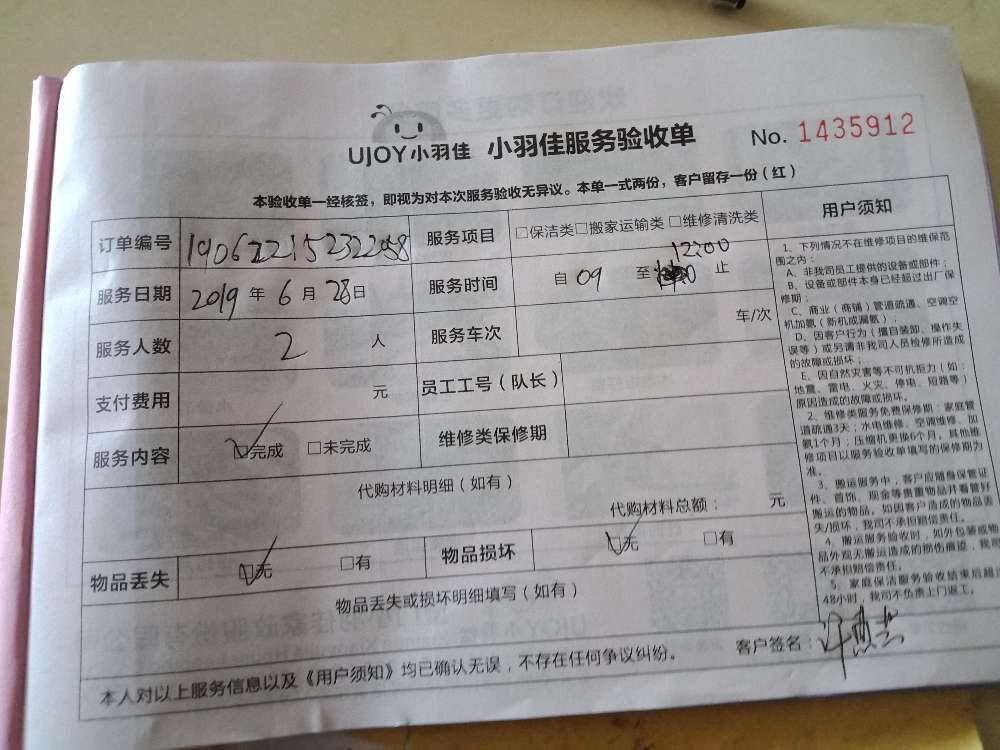 UJOY小羽佳 小羽佳服务验收单 No. 1435912
本验收单一经核签，即视为对本次服务验收无异议。本单一式两份，客户留存一份（红）
订单编号 服务项目 □保洁类□搬家运输类□维修清洗类
服务日期 2019 年 6 月 28 日 服务时间 自 09 至 12:00 止
服务人数 2 人 服务车次 车/次
支付费用 元 员工工号（队长）
服务内容 ☑完成 □未完成 维修类保修期
代购材料明细（如有）
代购材料总额： 元
物品丢失 ☑无 □有 物品损坏 ☑无 □有
物品丢失或损坏明细填写（如有）
本人对以上服务信息以及《用户须知》均已确认无误，不存在任何争议纠纷。 客户签名：
用户须知
1、下列情况不在维修项目的维保范
围之内：
A、非我司员工提供的设备或部件；
B、设备或部件本身已经超过出厂保
修期；
C、商业（商铺）管道疏通、空调空
机加氨（新机或漏氨）；
D、因客户行为（擅自装卸、操作失
误等）或另请非我司人员检修所造成
的故障或损坏；
E、因自然灾害等不可抗拒力（如：
地震、雷电、火灾、停电、短路等）
原因造成的故障或损坏。
2、维修类服务免费保修期：家庭管
道疏通3天；水电维修、空调维修、加
氨1个月；压缩机更换6个月，其他维
修项目以服务验收单填写的保修期为
准。
3、搬运服务中，客户应随身保管证
件、首饰、现金等贵重物品并看管好
搬运的物品。如因客户造成的物品丢
失/损坏，我司不承担赔偿责任。
4、搬运服务验收时，如外包装或物
品外观无搬运造成的损伤痕迹，我司
不承担赔偿责任。
5、家庭保洁服务验收结束后超过
48小时，我司不负责上门返工。